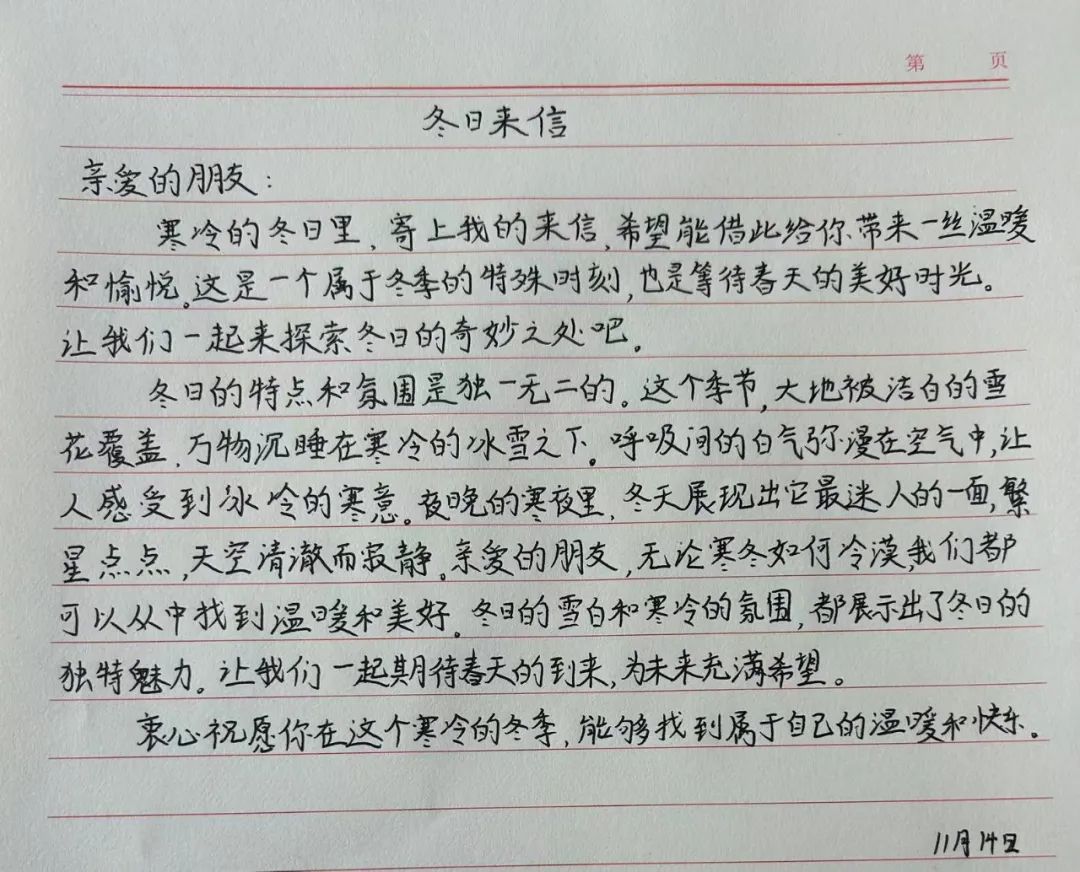 第 页
冬日来信
亲爱的朋友：
寒冷的冬日里，寄上我的来信，希望能借此给你带来一丝温暖
和愉悦。这是一个属于冬季的特殊时刻，也是等待春天的美好时光。
让我们一起来探索冬日的奇妙之处吧。
冬日的特点和氛围是独一无二的。这个季节，大地被洁白的雪
花覆盖，万物沉睡在寒冷的冰雪之下。呼吸间的白气弥漫在空气中，让
人感受到冰冷的寒意。夜晚的寒夜里，冬天展现出它最迷人的一面，繁
星点点，天空清澈而寂静。亲爱的朋友，无论寒冬如何冷漠，我们都
可以从中找到温暖和美好。冬日的雪白和寒冷的氛围，都展示出了冬日的
独特魅力。让我们一起期待春天的到来，为未来充满希望。
衷心祝愿你在这个寒冷的冬季，能够找到属于自己的温暖和快乐。
11月14日